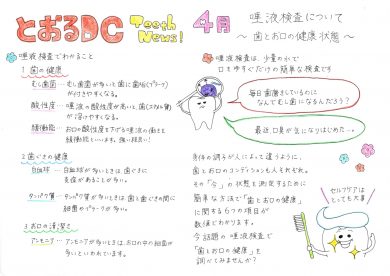 とおるDC Teeth News! 4月
唾液検査でわかること
1 歯の健康
むし歯菌…むし歯菌が多いと歯に歯垢(プラーク)
が付きやすくなる。
酸性度…唾液の酸性度が高いと、歯(エナメル質)
が溶けやすくなる。
緩衝能…お口の酸性度を下げる唾液の働きを
緩衝能といいます。強い程良い!
2 歯ぐきの健康
白血球…白血球が多いときは、歯ぐきに
炎症があることが多い。
タンパク質…タンパク質が多いときは歯と歯ぐきの間に
細菌やプラークが多い。
3 お口の清潔さ
アンモニア…アンモニアが多いときは、お口の中の細菌が
多いといわれています。
唾液検査について
～歯とお口の健康状態～
唾液検査は、少量の水で
口をゆすぐだけの簡単な検査です
毎日歯磨きしているのに
なんでむし歯になるんだろう?
最近口臭が気になりはじめた…。
身体の調子が人によって違うように、
歯とお口のコンディションも人それぞれ。
その「今」の状態を測定するために
簡単な方法で「歯とお口の健康」
に関する6つの項目が
数値でわかります。
今話題の唾液検査で
「歯とお口の健康」を
調べてみませんか?
セルフケアは
とっても大事